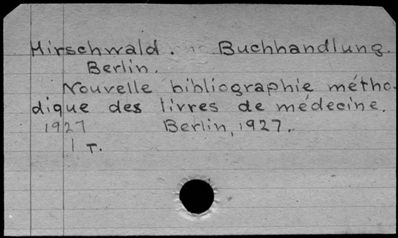 Hirschwald. Buchhandlung.
Berlin.
Nouvelle bibliographie métho-
dique des livres de médecine.
1927 Berlin, 1927.
1 T.